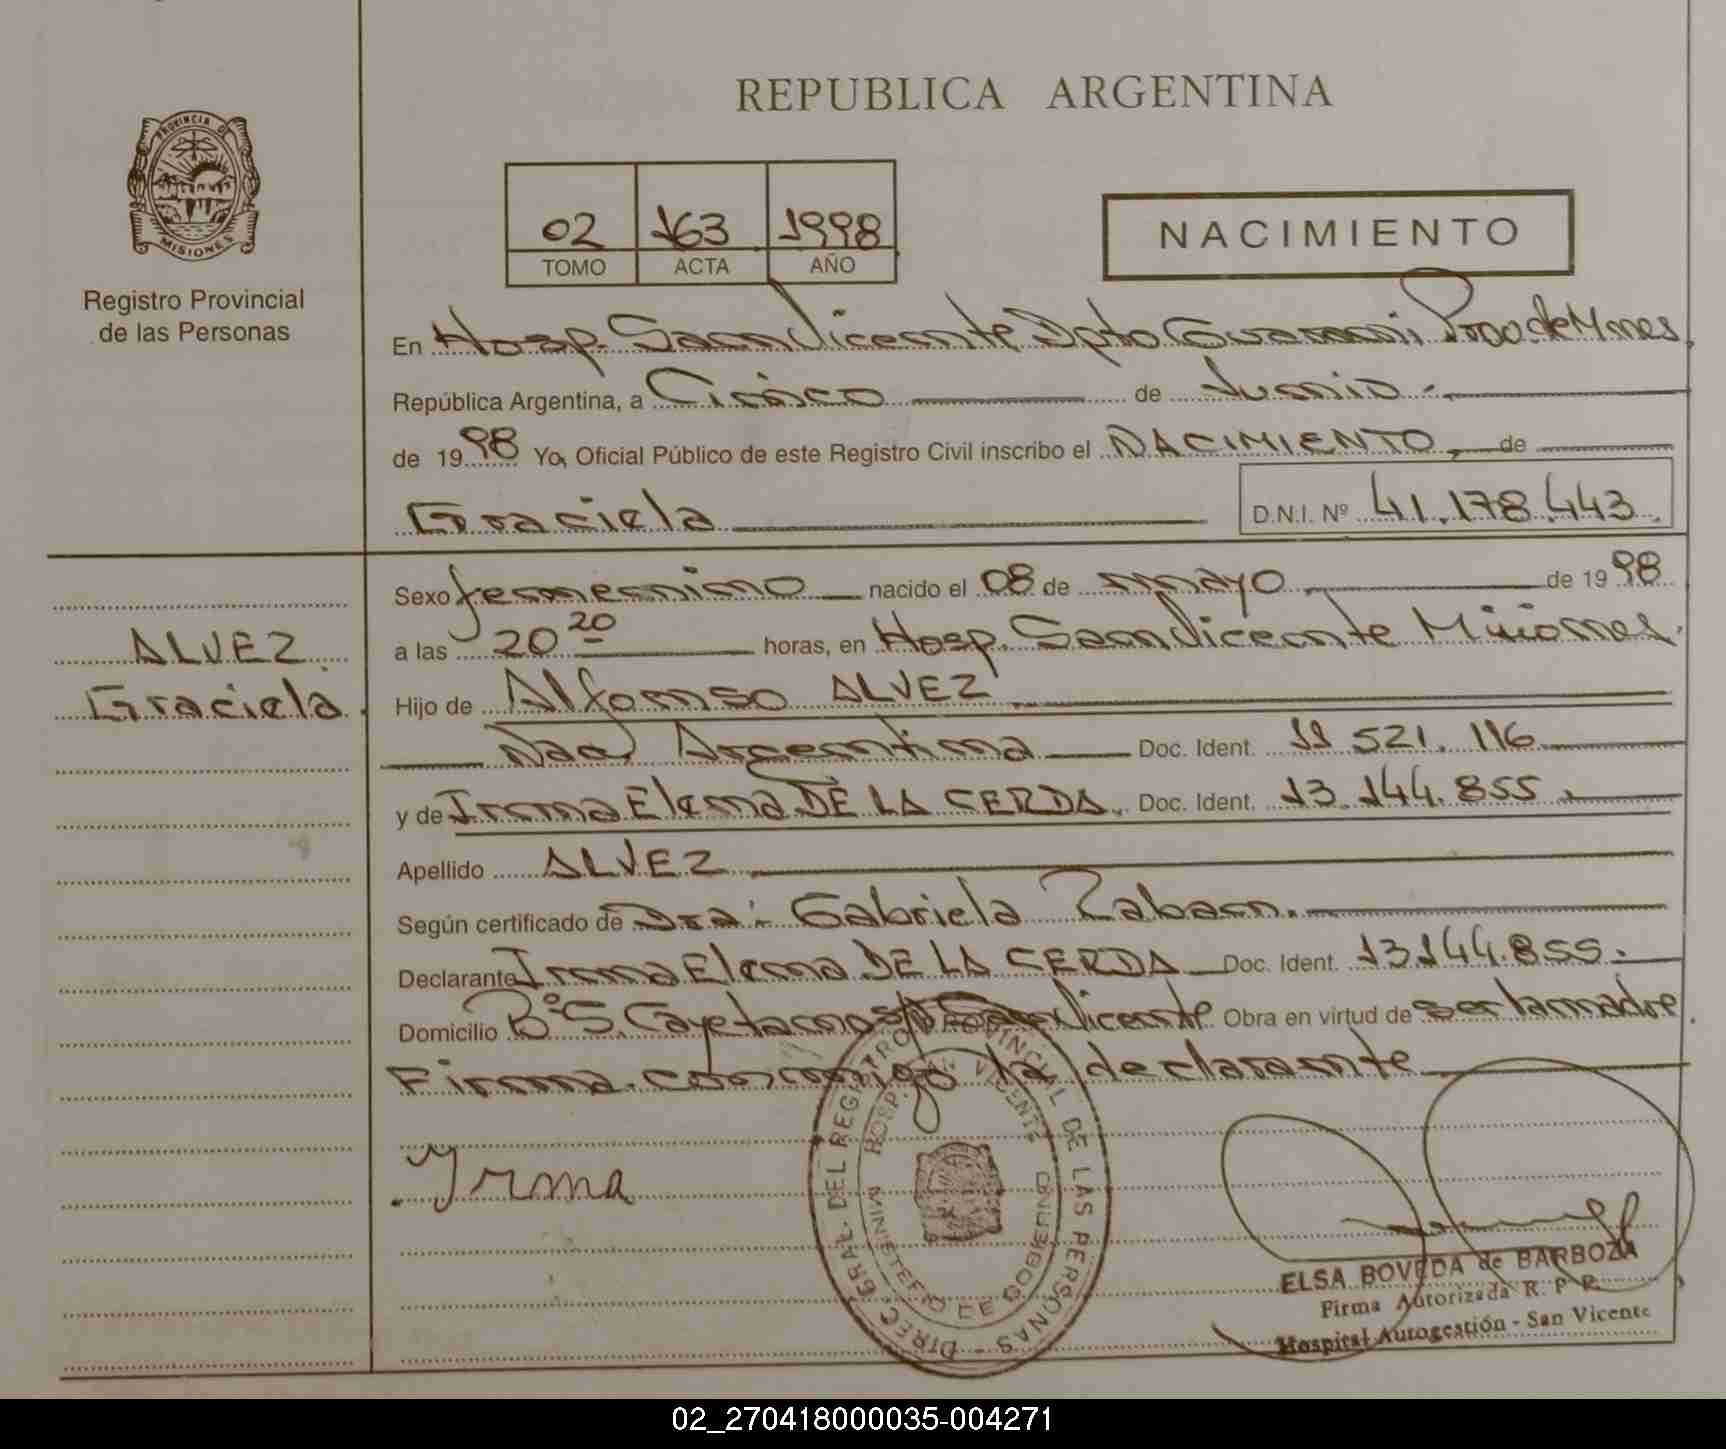 REPUBLICA ARGENTINA
PROVINCIA DE MISIONES
Registro Provincial
de las Personas
02 163 1998
TOMO ACTA AÑO
NACIMIENTO
En Hosp. San Vicente Dpto Guarani, Prov. de Mnes,
República Argentina, a Cinco de Junio
de 1998 Yo, Oficial Público de este Registro Civil inscribo el NACIMIENTO, de
Graciela D.N.I. Nº 41.178.443.
ALVEZ
Graciela.
Sexo femenino nacido el 08 de mayo de 1998
a las 20 20 horas, en Hosp. San Vicente Misiones.
Hijo de Alfonso ALVEZ
Nac Argentina Doc. Ident. 11 521. 116
y de Irma Elena DE LA CERDA. Doc. Ident. 13.144.855.
Apellido ALVEZ
Según certificado de Dra. Gabriela Zaban.
Declarante Irma Elena DE LA CERDA Doc. Ident. 13144.855.
Domicilio Bº S. Cayetano San Vicente Obra en virtud de ser la madre.
Firma conmigo la declarante
Irma
DIREC. GRAL. DEL REGISTRO PROVINCIAL DE LAS PERSONAS -
HOSP. SAN VICENTE
MINISTERIO DE GOBIERNO
ELSA BOVEDA de BARBOZA
Firma Autorizada R. P. P.
Hospital Autogestión - San Vicente
02_270418000035-004271